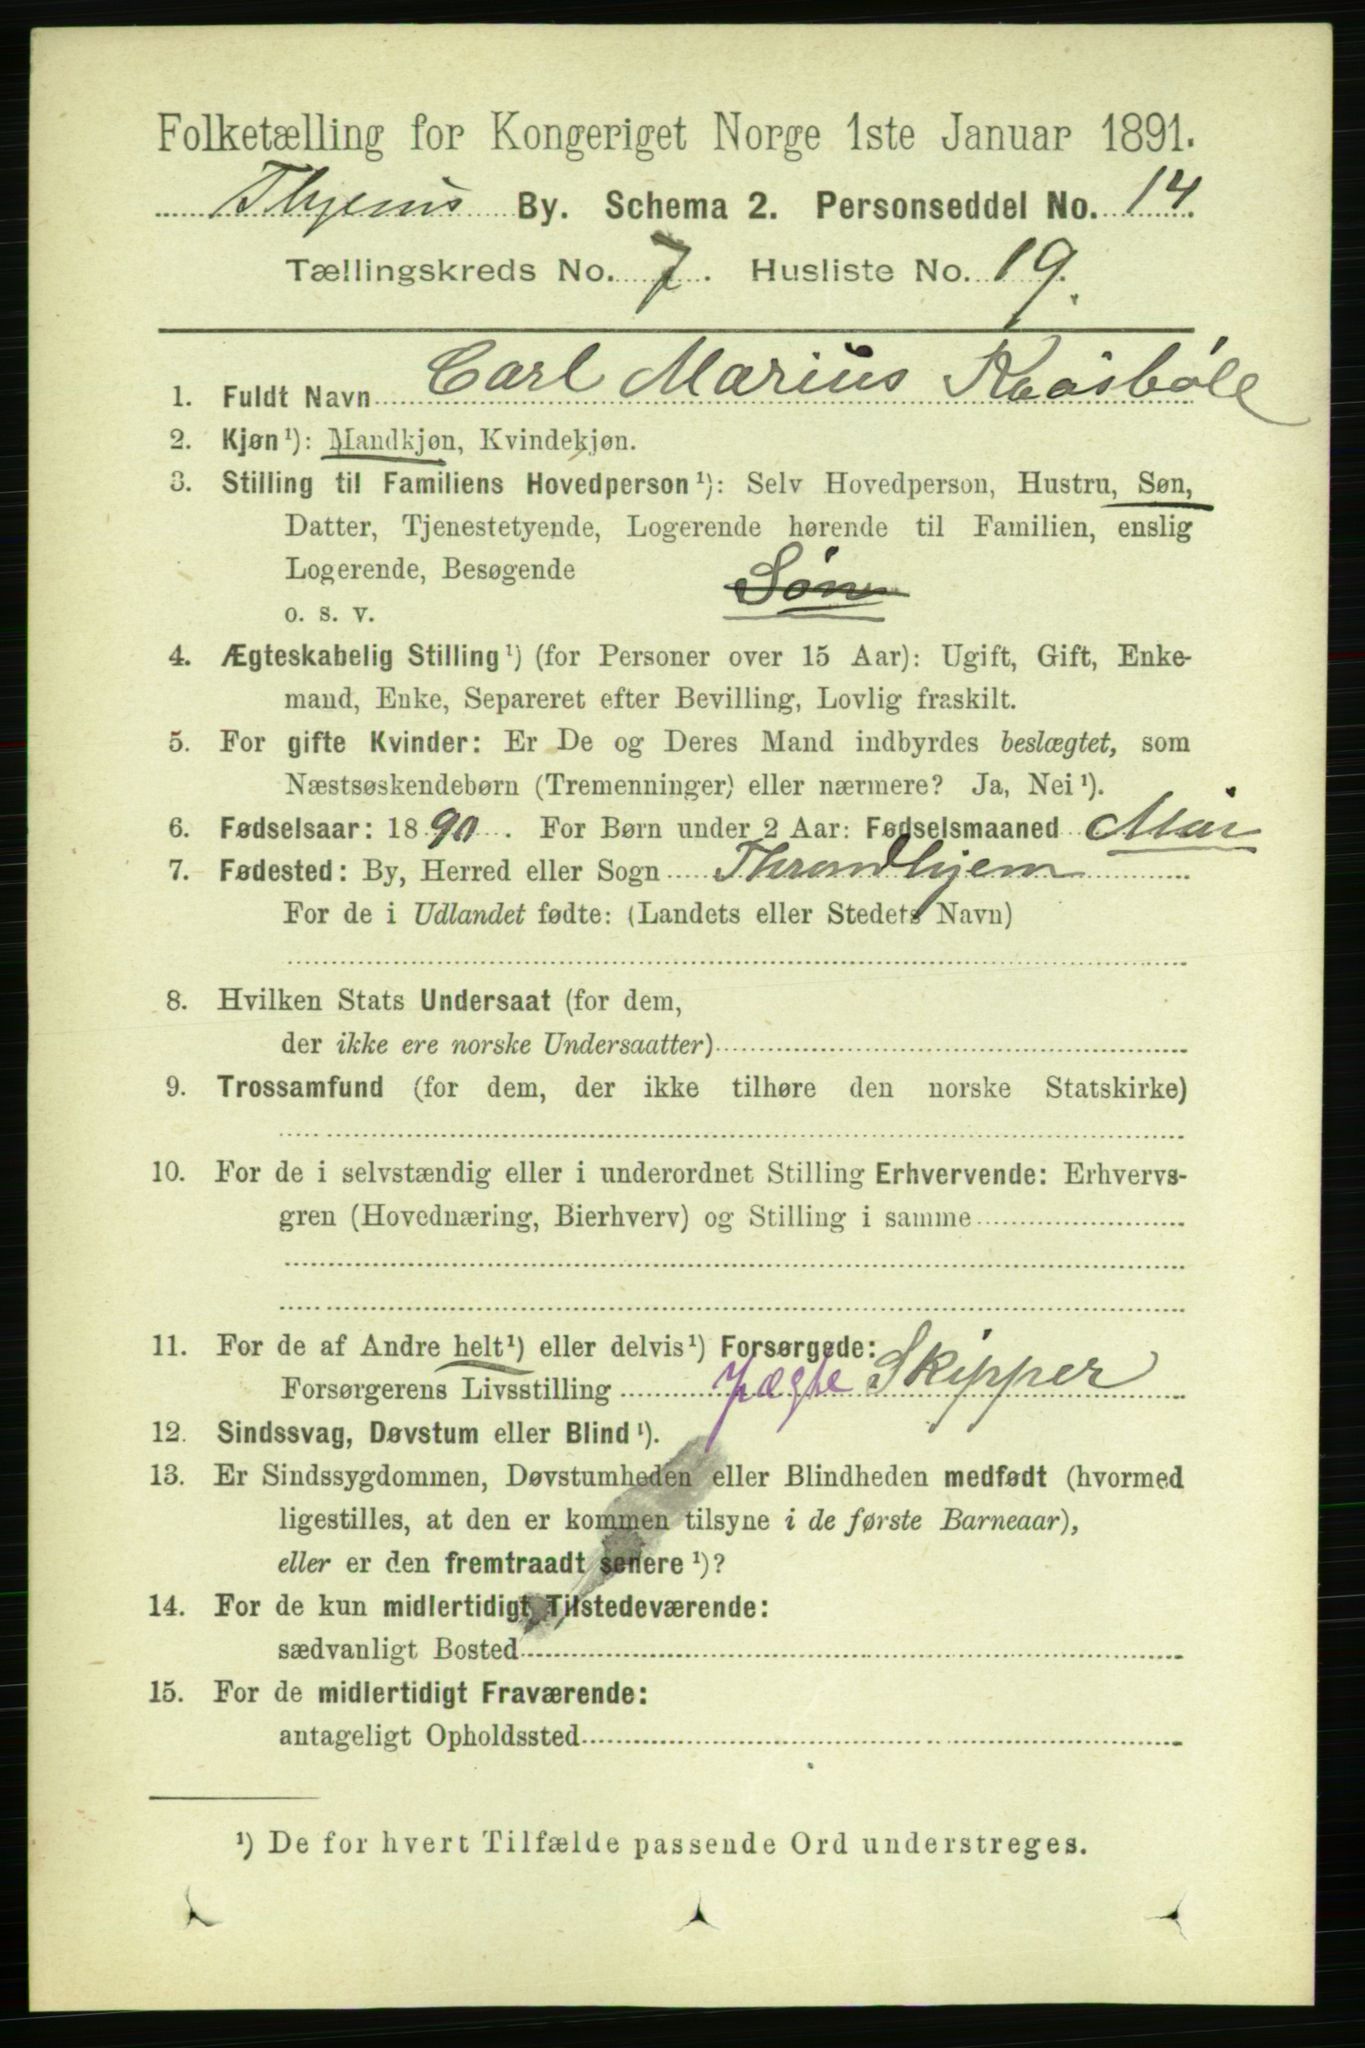 Folketælling for Kongeriget Norge 1ste Januar 1891.
Thjems By. Schema 2. Personseddel No. 14
Tællingskreds No. 7. Husliste No. 19.
1. Fuldt Navn Carl Marius Raasbøle
2. Kjøn¹): Mandkjøn, Kvindekjøn.
3. Stilling til Familiens Hovedperson¹): Selv Hovedperson, Hustru, Søn,
Datter, Tjenestetyende, Logerende hørende til Familien, enslig
Logerende, Besøgende
o. s. v. Søn
4. Ægteskabelig Stilling¹) (for Personer over 15 Aar): Ugift, Gift, Enke-
mand, Enke, Separeret efter Bevilling, Lovlig fraskilt.
5. For gifte Kvinder: Er De og Deres Mand indbyrdes beslægtet, som
Næstsøskendebørn (Tremenninger) eller nærmere? Ja, Nei¹).
6. Fødselsaar: 1890. For Børn under 2 Aar: Fødselsmaaned Mai
7. Fødested: By, Herred eller Sogn Throndhjem
For de i Udlandet fødte: (Landets eller Stedets Navn)
8. Hvilken Stats Undersaat (for dem,
der ikke ere norske Undersaatter)
9. Trossamfund (for dem, der ikke tilhøre den norske Statskirke)
10. For de i selvstændig eller i underordnet Stilling Erhvervende: Erhvervs-
gren (Hovednæring, Bierhverv) og Stilling i samme
11. For de af Andre helt¹) eller delvis¹) Forsørgede:
Forsørgerens Livsstilling Jægte Skipper
12. Sindssvag, Døvstum eller Blind¹).
13. Er Sindssygdommen, Døvstumheden eller Blindheden medfødt (hvormed
ligestilles, at den er kommen tilsyne i de første Barneaar),
eller er den fremtraadt senere¹)?
14. For de kun midlertidigt Tilstedeværende:
sædvanligt Bosted
15. For de midlertidigt Fraværende:
antageligt Opholdssted
¹) De for hvert Tilfælde passende Ord understreges.